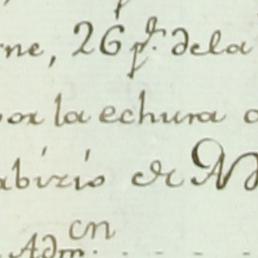 rne, 26 p.s dela
por la echura d
abizio en
Adm.cn